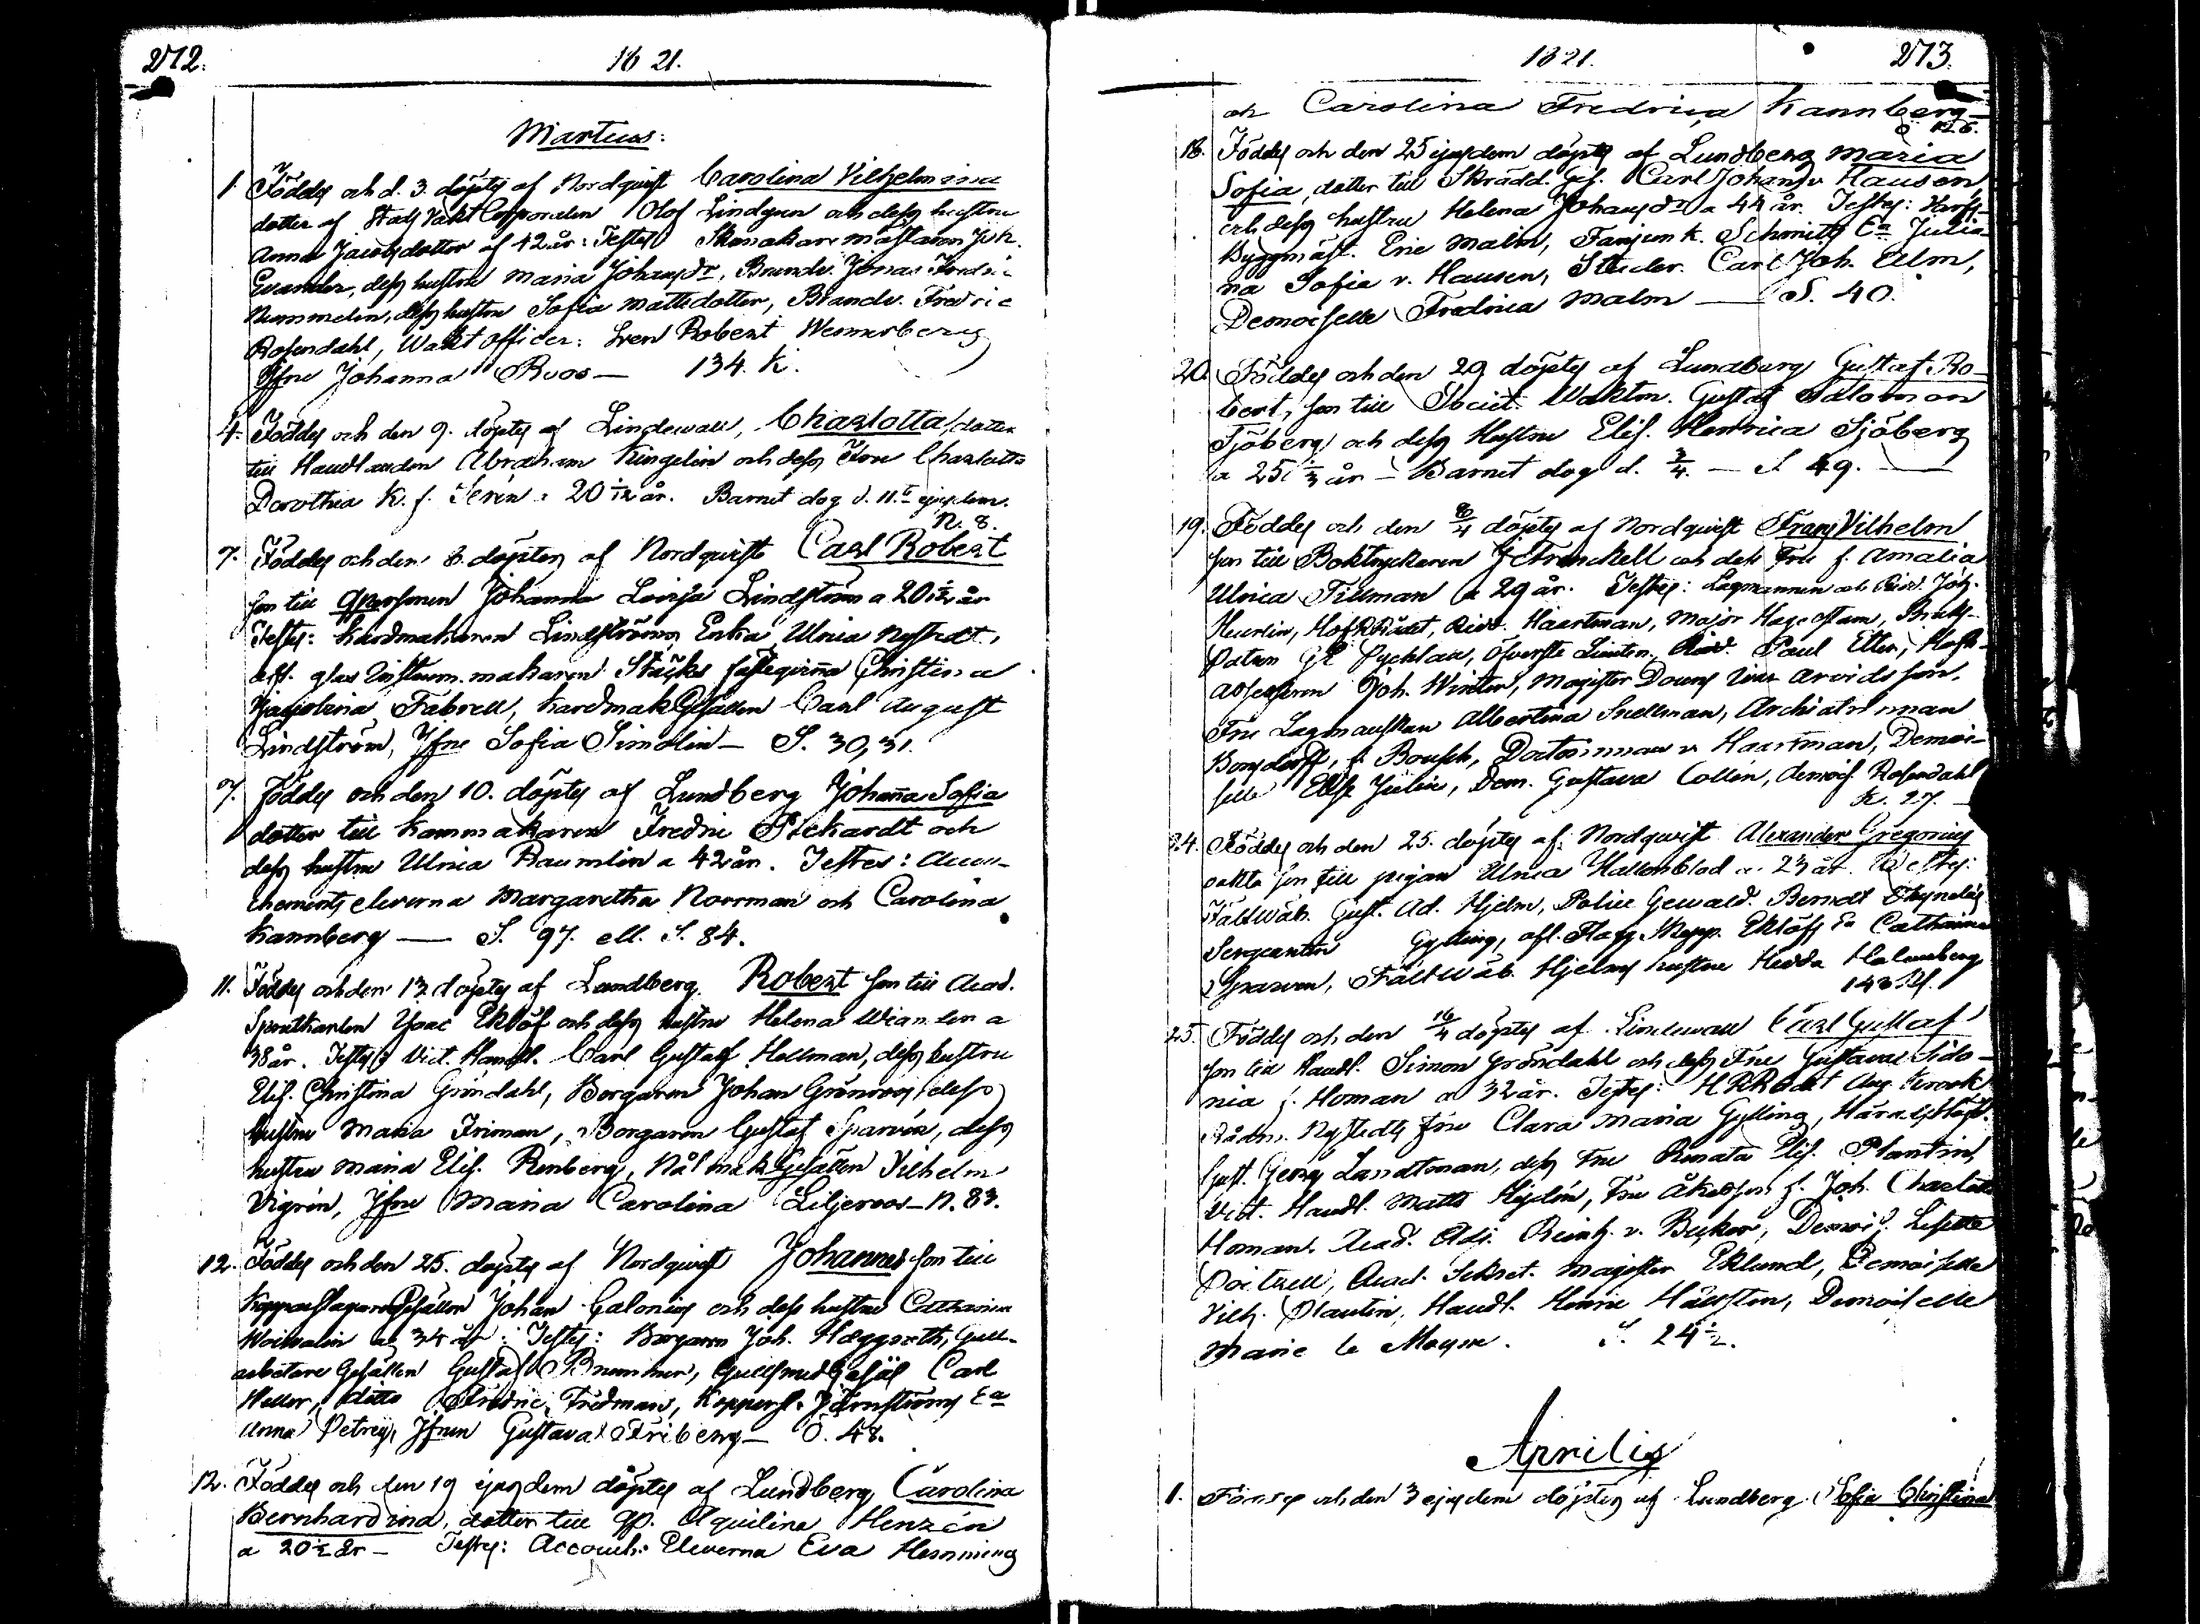 272.
1821.
Martius:
1. Föddes och d. 3. döptes af Nordquist Carolina Vilhelmina
dotter af Stads Vakt Corporalen Olof Lindgren och dess hustru
Anna Jacobsdotter af 42 år: Testes Skomakare mästaren Joh.
Evander, dess hustru Maria Johansdr, Brandv. Jonas Fredric
Nummelin, dess hustru Sofia Mattsdotter, Brandv. Fredric
Rosendahl, Wakt officer: Sven Robert Wennerberg
Jfru Johanna Roos — 134. K.
4. Föddes och den 9. döptes af Lindewall, Charlotta, dotter
till Handlanden Abraham Kingelin och dess Fru Charlotta
Dorothea K. f. Serén a 20 1/12 år. Barnet dog d. 11te ejusdem.
N. 8.
7. Föddes och den 8. döptes af Nordquist Carl Robert
son till Qpersonen Johanna Lovisa Lindström a 20 1/2 år
Testes: Kardmakaren Lindströms Enka Ulrica Nystedt,
aff. glas Instrum. makaren fästeqvinna Christina
Fabrell, Kardmak Gesällen Carl August
Lindström, Jfru Sofia Simolin — S. 30, 31.
7. Föddes och den 10. döptes af Lundberg Johanna Sofia
dotter till Kammakaren Fredric Pickardt och
dess hustru Ulrica Raumolin a 42 år. Testes: Accou-
chements eleverna Margaretha Norrman och Carolina
Kannberg — S. 97. ell. S. 84.
11. Föddes och den 13 döptes af Lundberg. Robert son till Acad.
Isaac Eklöf och dess hustru Helena Wianden a
38 år. Testes: Vict. Handl. Carl Gustaf Hellman, dess hustru
Elis. Christina Gröndahl, Borgaren Johan Grönroos, dess
hustru Maria Friman, Borgaren Gustaf Sparvén, dess
hustru Maria Elis. Renberg, Nålmak Gesällen Vilhelm
Vigrén, Jfru Maria Carolina Liljeroos — N. 83.
12. Föddes och den 25. döptes af Nordquist Johannes son till
Kopparslagare Gesällen Johan Galonius och dess hustru Catharina
Woivalin af 34 år: Testes: Borgaren Joh. Haeggroth, Guld-
arbetare Gesällen Gustaf Brummer, Gullsmed Gesäl Carl
Heller, ditto Fredric Fredman, Koppersl. Järnströms Ea
Anna Petrej, Jfrun Gustava Friberg — Ö. 48.
12. Föddes och den 19 ejusdem döptes af Lundberg Carolina
Bernhardina, dotter till Qp. Aquilina Henzén
a 20 1/2 år — Testes: Accouch: Eleverna Eva Hemming
1821.
273.
och Carolina Fredrica Kannberg —
18. Föddes och den 25 ejusdem döptes af Lundberg Maria
Sofia, dotter till Skrädd. Ges. Carl Johan v. Hausen
och dess hustru Helena Johansdr a 44 år. Testes: Varfs-
Byggmäst. Eric Malm, Fanjunk. Schmitts Ea Julia-
na Sofia v. Hausen, Studer. Carl Joh. Elm,
Demoiselle Fredrica Malm — S. 40.
20. Föddes och den 29 döptes af Lundberg Gustaf Ro-
bert, son till Societ. Waktm. Gustaf Salomon
Sjöberg och dess Hustru Elis. Henrica Sjöberg
a 25 1/3 år — Barnet dog d. 3/4. — S. 49. —
19. Föddes och den 8/4 döptes af Nordquist Frans Vilhelm
son till Boktryckaren J C Frenckell och dess Fru f. Amalia
Ulrica Tillman a 29 år. Testes: Lagmannen och Ridd. Joh.
Heurlin, HofRRådet, Ridd. Haartman, Major Hagelstam, Bruks-
Patron GL Lychlau, Öfverste Lieuten. Ridd. Paul Etter, Hofr.
Assessorn Joh. Winter, Magister Docens Ivar Arvidsson,
Fru Lagmanskan Albertina Snellman, Archiatrinnan
Bonsdorff, f. Bousch, Doctorinnan v Haartman, Demoi-
selle Elise Julin, Dem. Gustava Collin, demois. Rosendahl
K. 27. —
24. Föddes och den 25. döptes af Nordquist Alexander Gregorius
oäkta son till pigan Ulrica Hallonblad a 23 år. Testes:
Fältwäb. Gust. Ad. Hjelm, Police Gewald. Berndt
Sergeanten Gylling, afl. Flagg Skepp. Eklöfs Ea Catharina
Sparvin, Fältwäb. Hjelms hustru Hedda Holmberg
25. Föddes och den 16/4 döptes af Lindewall Carl Gustaf
son till Handl. Simon Gröndahl och dess Fru Gustava Sido-
nia f. Homan a 32 år. Testes: HRRådet Aug. Krook
Rådm. Nystedts Fru Clara Maria Gylling, Häradshöfd.
Gust. Georg Landtman, dess Fru Renata Elis. Plantin,
Vict. Handl. Matts Hjelm, Fru Åkesson f. Joh. Charlotta
Homan. Acad. Adj. Reinh. v. Becker, Demois. Lisette
Acad. Sekret. Magister Eklund, Demoiselle
Vilh. Plantin, Handl. Henric Hällström, Demoiselle
Marie le Moyne. S. 24 1/2.
Aprilis
1. Föddes och den 3 ejusdem döptes af Lundberg Sofia Christina